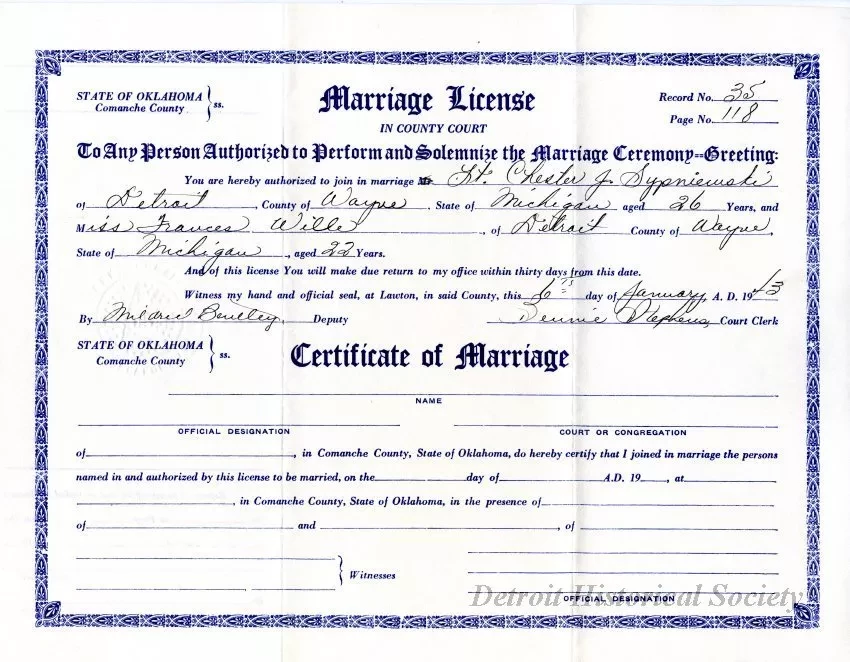 STATE OF OKLAHOMA
Comanche County
ss.
Marriage License
IN COUNTY COURT
Record No. 35
Page No. 118
To Any Person Authorized to Perform and Solemnize the Marriage Ceremony--Greeting:
You are hereby authorized to join in marriage Lt. Chester J. Sypniewski
of Detroit, County of Wayne, State of Michigan aged 26 Years, and
Miss Frances Wille, of Detroit County of Wayne,
State of Michigan, aged 22 Years.
And of this license You will make due return to my office within thirty days from this date.
Witness my hand and official seal, at Lawton, in said County, this 6th day of January, A. D. 1943
By Mildred Deputy Bennie Stephens, Court Clerk
STATE OF OKLAHOMA
Comanche County
ss.
Certificate of Marriage
NAME
OFFICIAL DESIGNATION COURT OR CONGREGATION
of , in Comanche County, State of Oklahoma, do hereby certify that I joined in marriage the persons
named in and authorized by this license to be married, on the day of A.D. 19 , at
, in Comanche County, State of Oklahoma, in the presence of
of and , of
Witnesses
OFFICIAL DESIGNATION
Detroit Historical Society